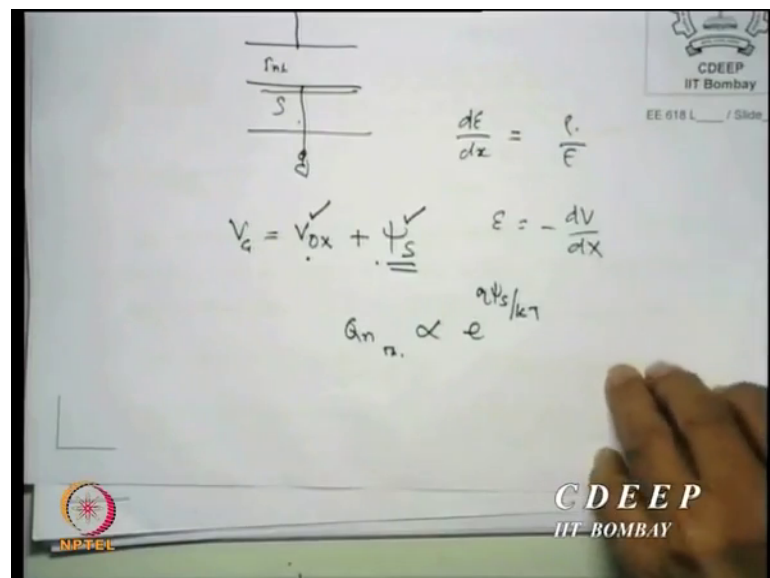 CDEEP
IIT Bombay
EE 618 L____ / Slide_
Ins
S
dE/dx = ρ/ε
V_G = V_OX + ψ_S
ε = - dV/dx
Q_n ∝ e^{qψ_S/kT}
n.
NPTEL
CDEEP
IIT BOMBAY